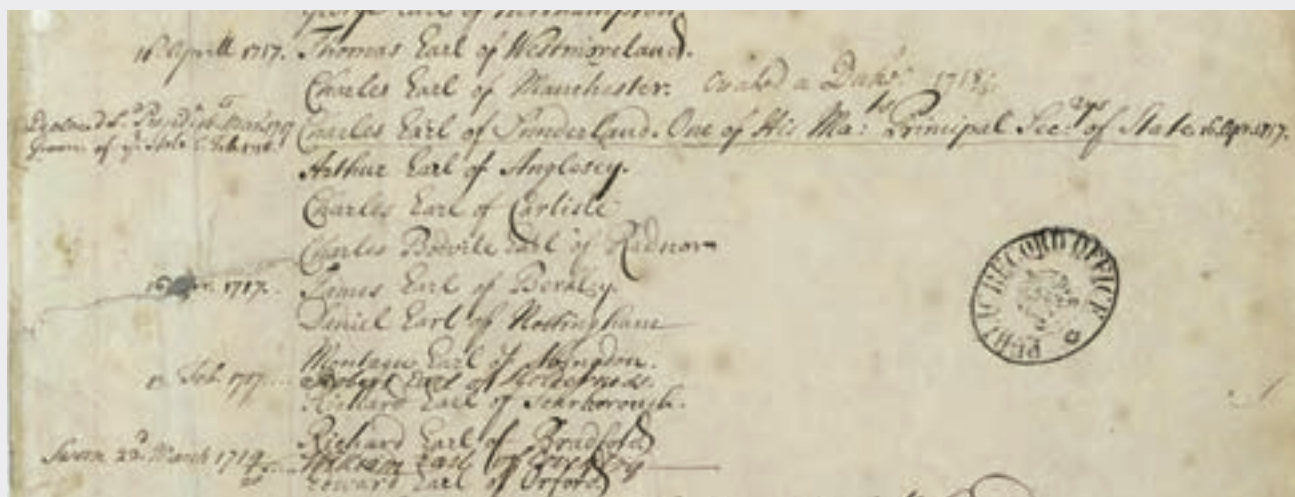 George Earl of Northampton.
16 Aprill 1717. Thomas Earl of Westmoreland.
Charles Earl of Manchester. Created a Duke 1719.
Charles Earl of Sunderland. One of His Ma:ts Principal Sec:rys of State 16 Apr. 1717.
Groom of ye Stole
Arthur Earl of Anglesey.
Charles Earl of Carlisle
Charles Bodvile Earl of Radnor
16 Apr. 1717. James Earl of Berkley
Daniel Earl of Nottingham
Montagu Earl of Abingdon.
Feb. 1717 Robert Earl of Holderness.
Richard Earl of Scarborough.
Richard Earl of Bradford
Sworn 22d March 1719/20 William Earl of
Edward Earl of Orford
PUBLIC RECORD OFFICE